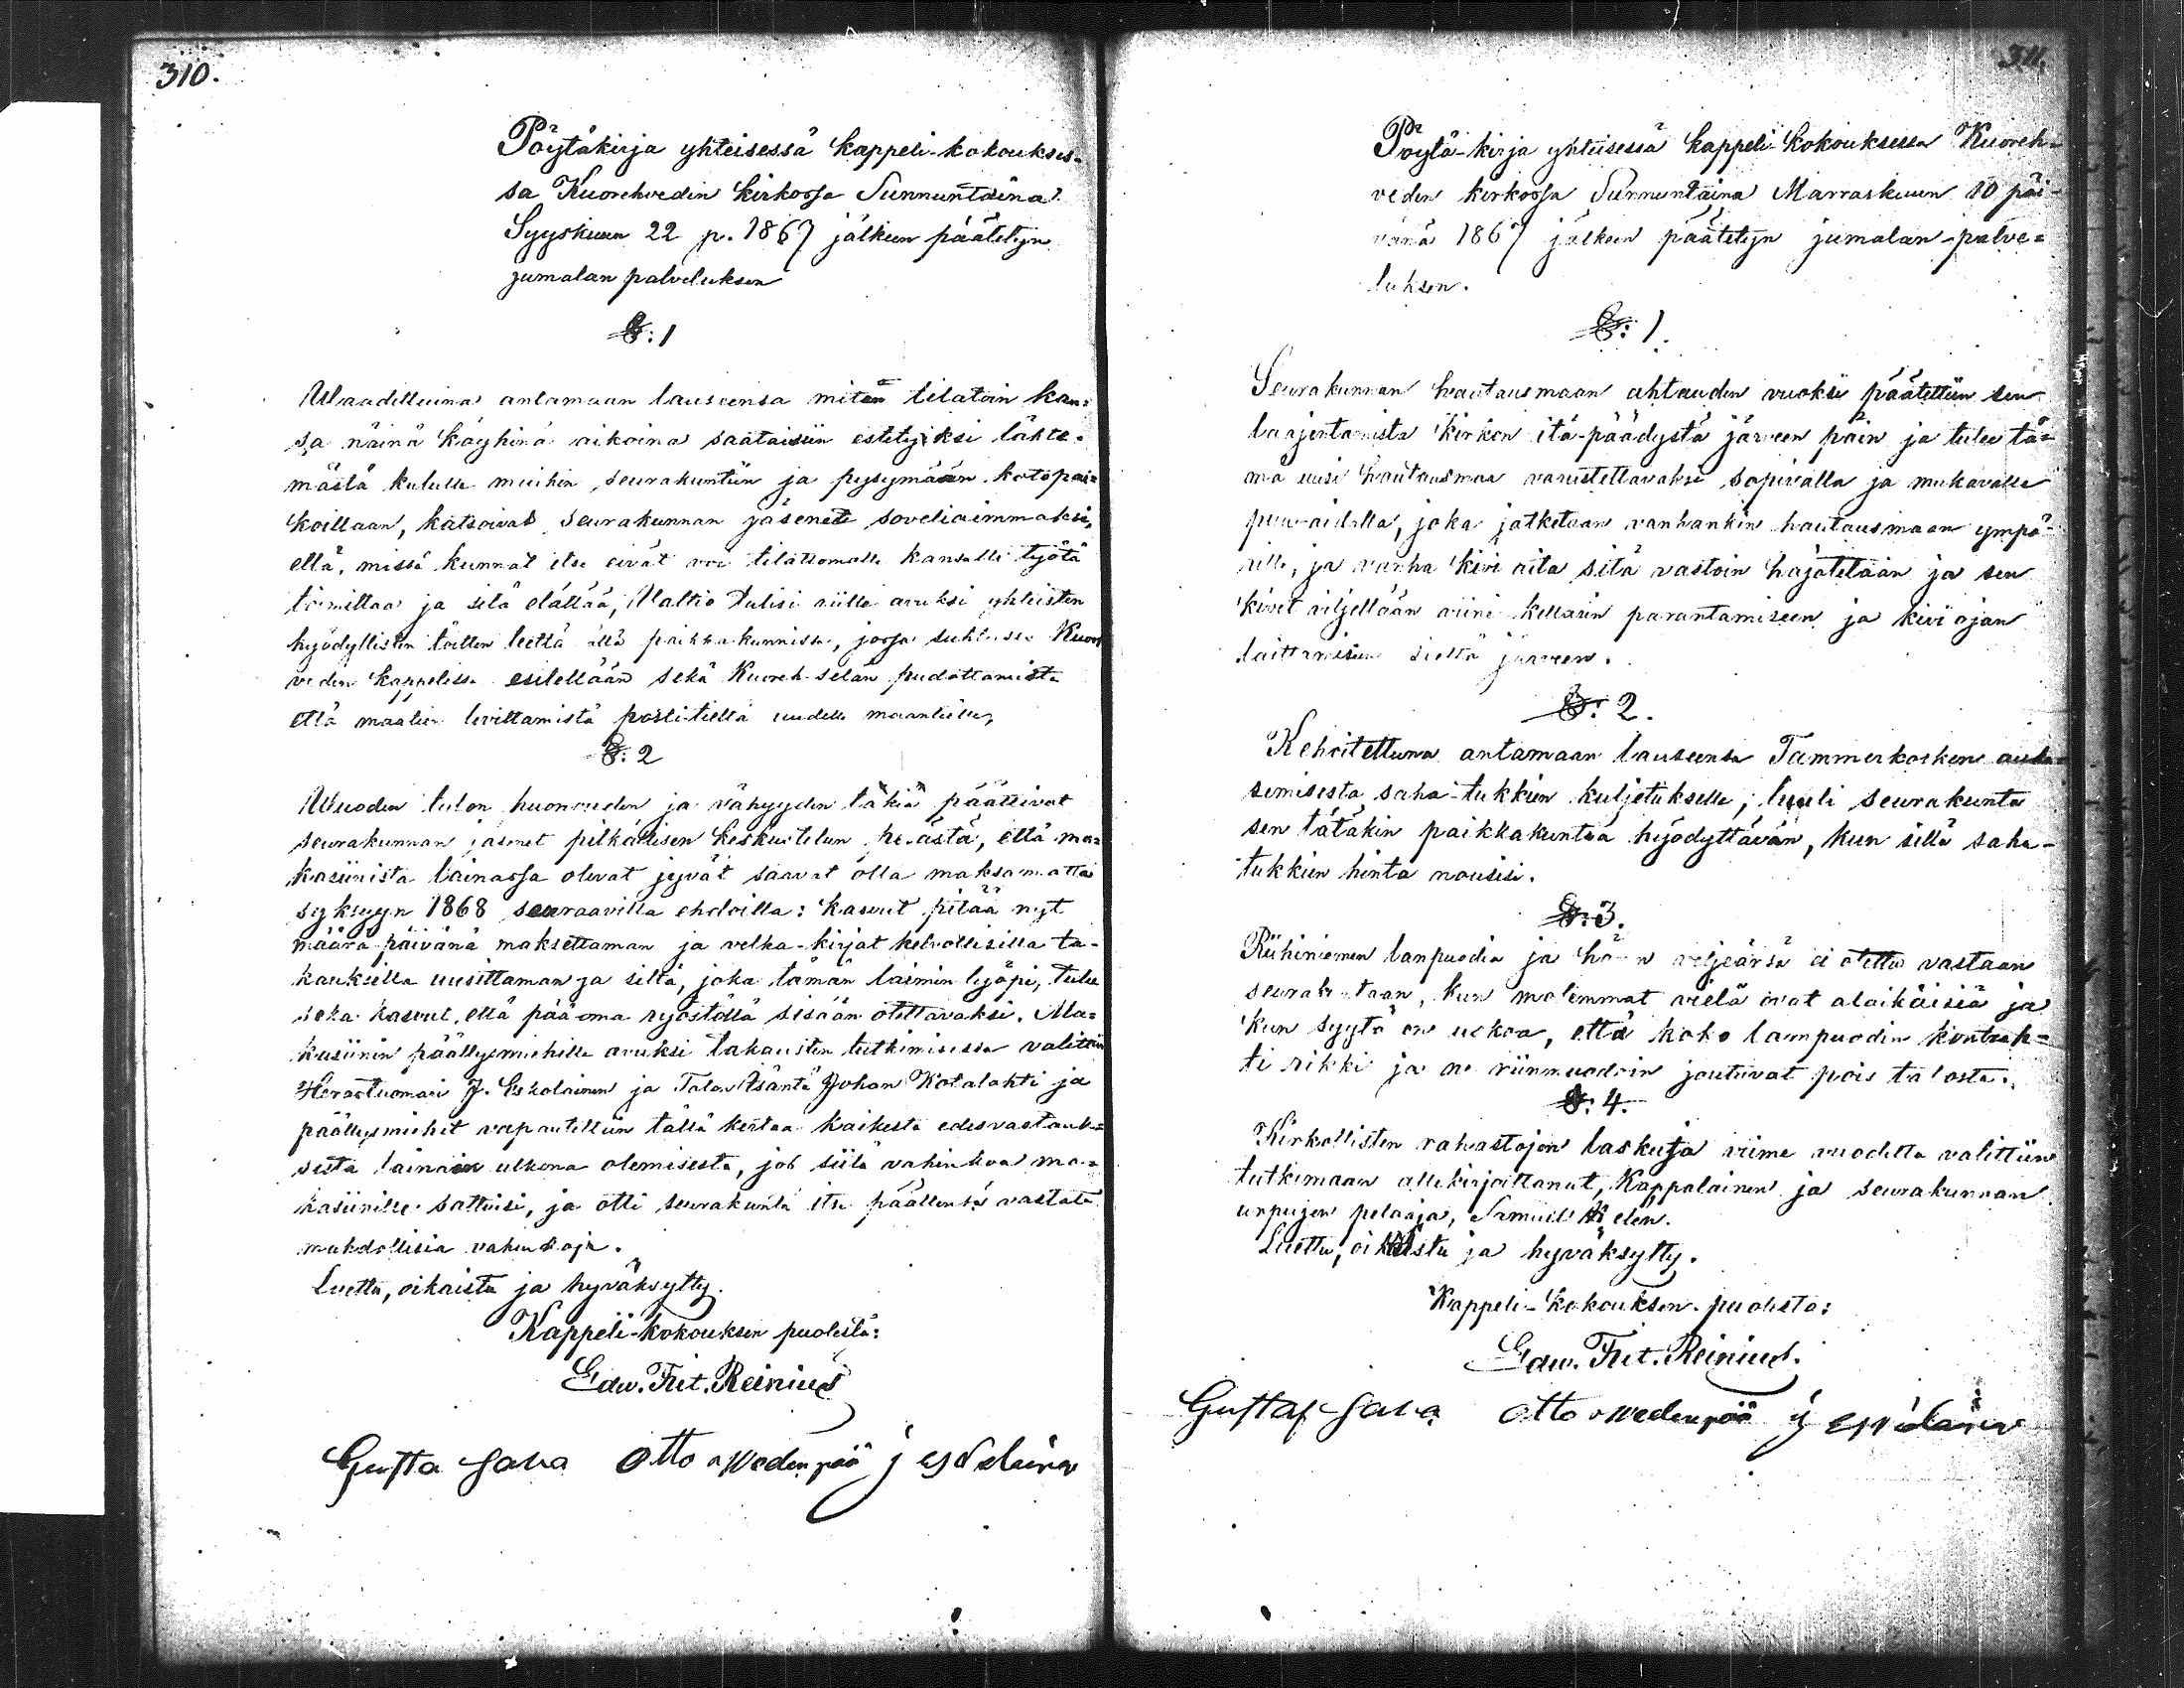 310.
Pöytäkirja yhteisessä kappeli-kokoukses-
sa Kuorehveden kirkossa Sunnuntaina
Syyskuun 22 p. 1867 jälkeen päätetyn
jumalan palveluksen
§: 1
Waadittuina antamaan lauseensa miten tilatoin kan-
sa näinä köyhinä aikoina saataisiin estetyiksi lähte-
mästä kululle muihin seurakuntiin ja pysymään kotopai-
koillaan, katsoivat seurakunnan jäsenet soveliaimmaksi,
että, missä kunnat itse eivät voi tilattomalle kansalle työtä
toimittaa ja sitä elättää, Waltio tulisi niille avuksi yhteisten
hyödyllisten töitten teettä ällä paikkakunnissa, jossa suhteessa Kuore
veden kappelissa esitellään sekä Kuoreh-selän pudottamista
että maatien levittamistä postitieltä uudelle maantielle,
§: 2
Wuoden tulon huonouden ja vähyyden tähden päättivät
seurakunnan jäsenet pitkällisen keskustelun perästä, että ma-
kasiinista lainassa olevat jyvät saavat olla maksamatta
syksyyn 1868 seuraavilla ehdoilla: kasvut pitää nyt
määrä-päivänä maksettaman ja velka-kirjat kelvollisilla ta-
kauksilla uusittaman ja siltä, joka tämän laimin lyöpi, tulee
sekä kasvut, että pää-oma ryöstöllä sisään otettavaksi. Ma-
kasiinin päällysmiehille avuksi takausten tutkimisessa valittiin
Herastuomari J. Eskolainen ja Talon Isäntä Johan Kotalahti ja
päällysmiehet vapautettiin tällä kertaa kaikesta edesvastauk-
sesta lainain ulkona olemisesta, jos siitä vahinkoa ma-
kasiinille sattuisi, ja otti seurakunta itse päällensä vastata
mahdollisia vahinkoja.
Luettu, oikaistu ja hyväksytty.
Kappeli-kokouksen puolesta:
Edw. Frit. Reinius
Gusta Sava Otto Wedenpää j eskolainen
311.
Pöytä-kirja yhteisessä kappeli-kokouksessa Kuoreh-
veden kirkossa Sunnuntaina Marraskuun 10 päi-
vänä 1867 jälkeen päätetyn jumalan-palve-
luksen.
§: 1.
Seurakunnan hautausmaan ahtauden vuoksi päätettiin sen
laajentamista kirkon itä-päädystä järveen päin ja tulee tä-
mä uusi hautausmaa varustettavaksi sopivalla ja mukavalla
puu-aidalla, joka jatketaan vanhankin hautausmaan ympä-
rille, ja vanha kivi aita sitä vastoin hajotetaan ja sen
kivet viljellään viini-kellarin parantamiseen ja kivi ojan
laittamiseen sieltä järveen.
§: 2.
Kehoitettuna antamaan lauseensa Tammerkosken auka-
semisesta saha-tukkien kuljetukselle, luuli seurakunta
sen tätäkin paikkakuntaa hyödyttävän, kun sillä saha-
tukkien hinta nousisi.
§: 3.
Riihiniemen lanpuodia ja hänen veljeänsä ei otettu vastaan
seurakuntaan, kun molemmat vielä ovat alaikäisiä ja
kun syytä on uskoa, että koko lampuodin kontrah-
ti rikki ja ne niinmuodoin joutuvat pois talosta.
§: 4.
Kirkollisten rahastojen laskuja viime vuodelta valittiin
tutkimaan allekirjoittanut, Kappalainen ja seurakunnan
urpujen pelaaja, Samuel
Luettu, oikaistu ja hyväksytty.
Kappeli-kokouksen puolesta:
Edw. Frit. Reinius.
Gustaf Sava Otto Wedenpää j eskolainen